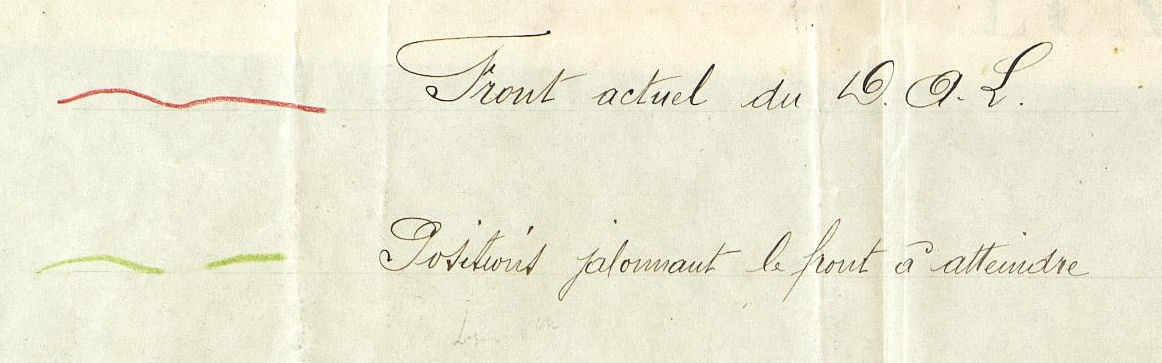 Front actuel du D. A. L.
Positions jalonnant le front à atteindre